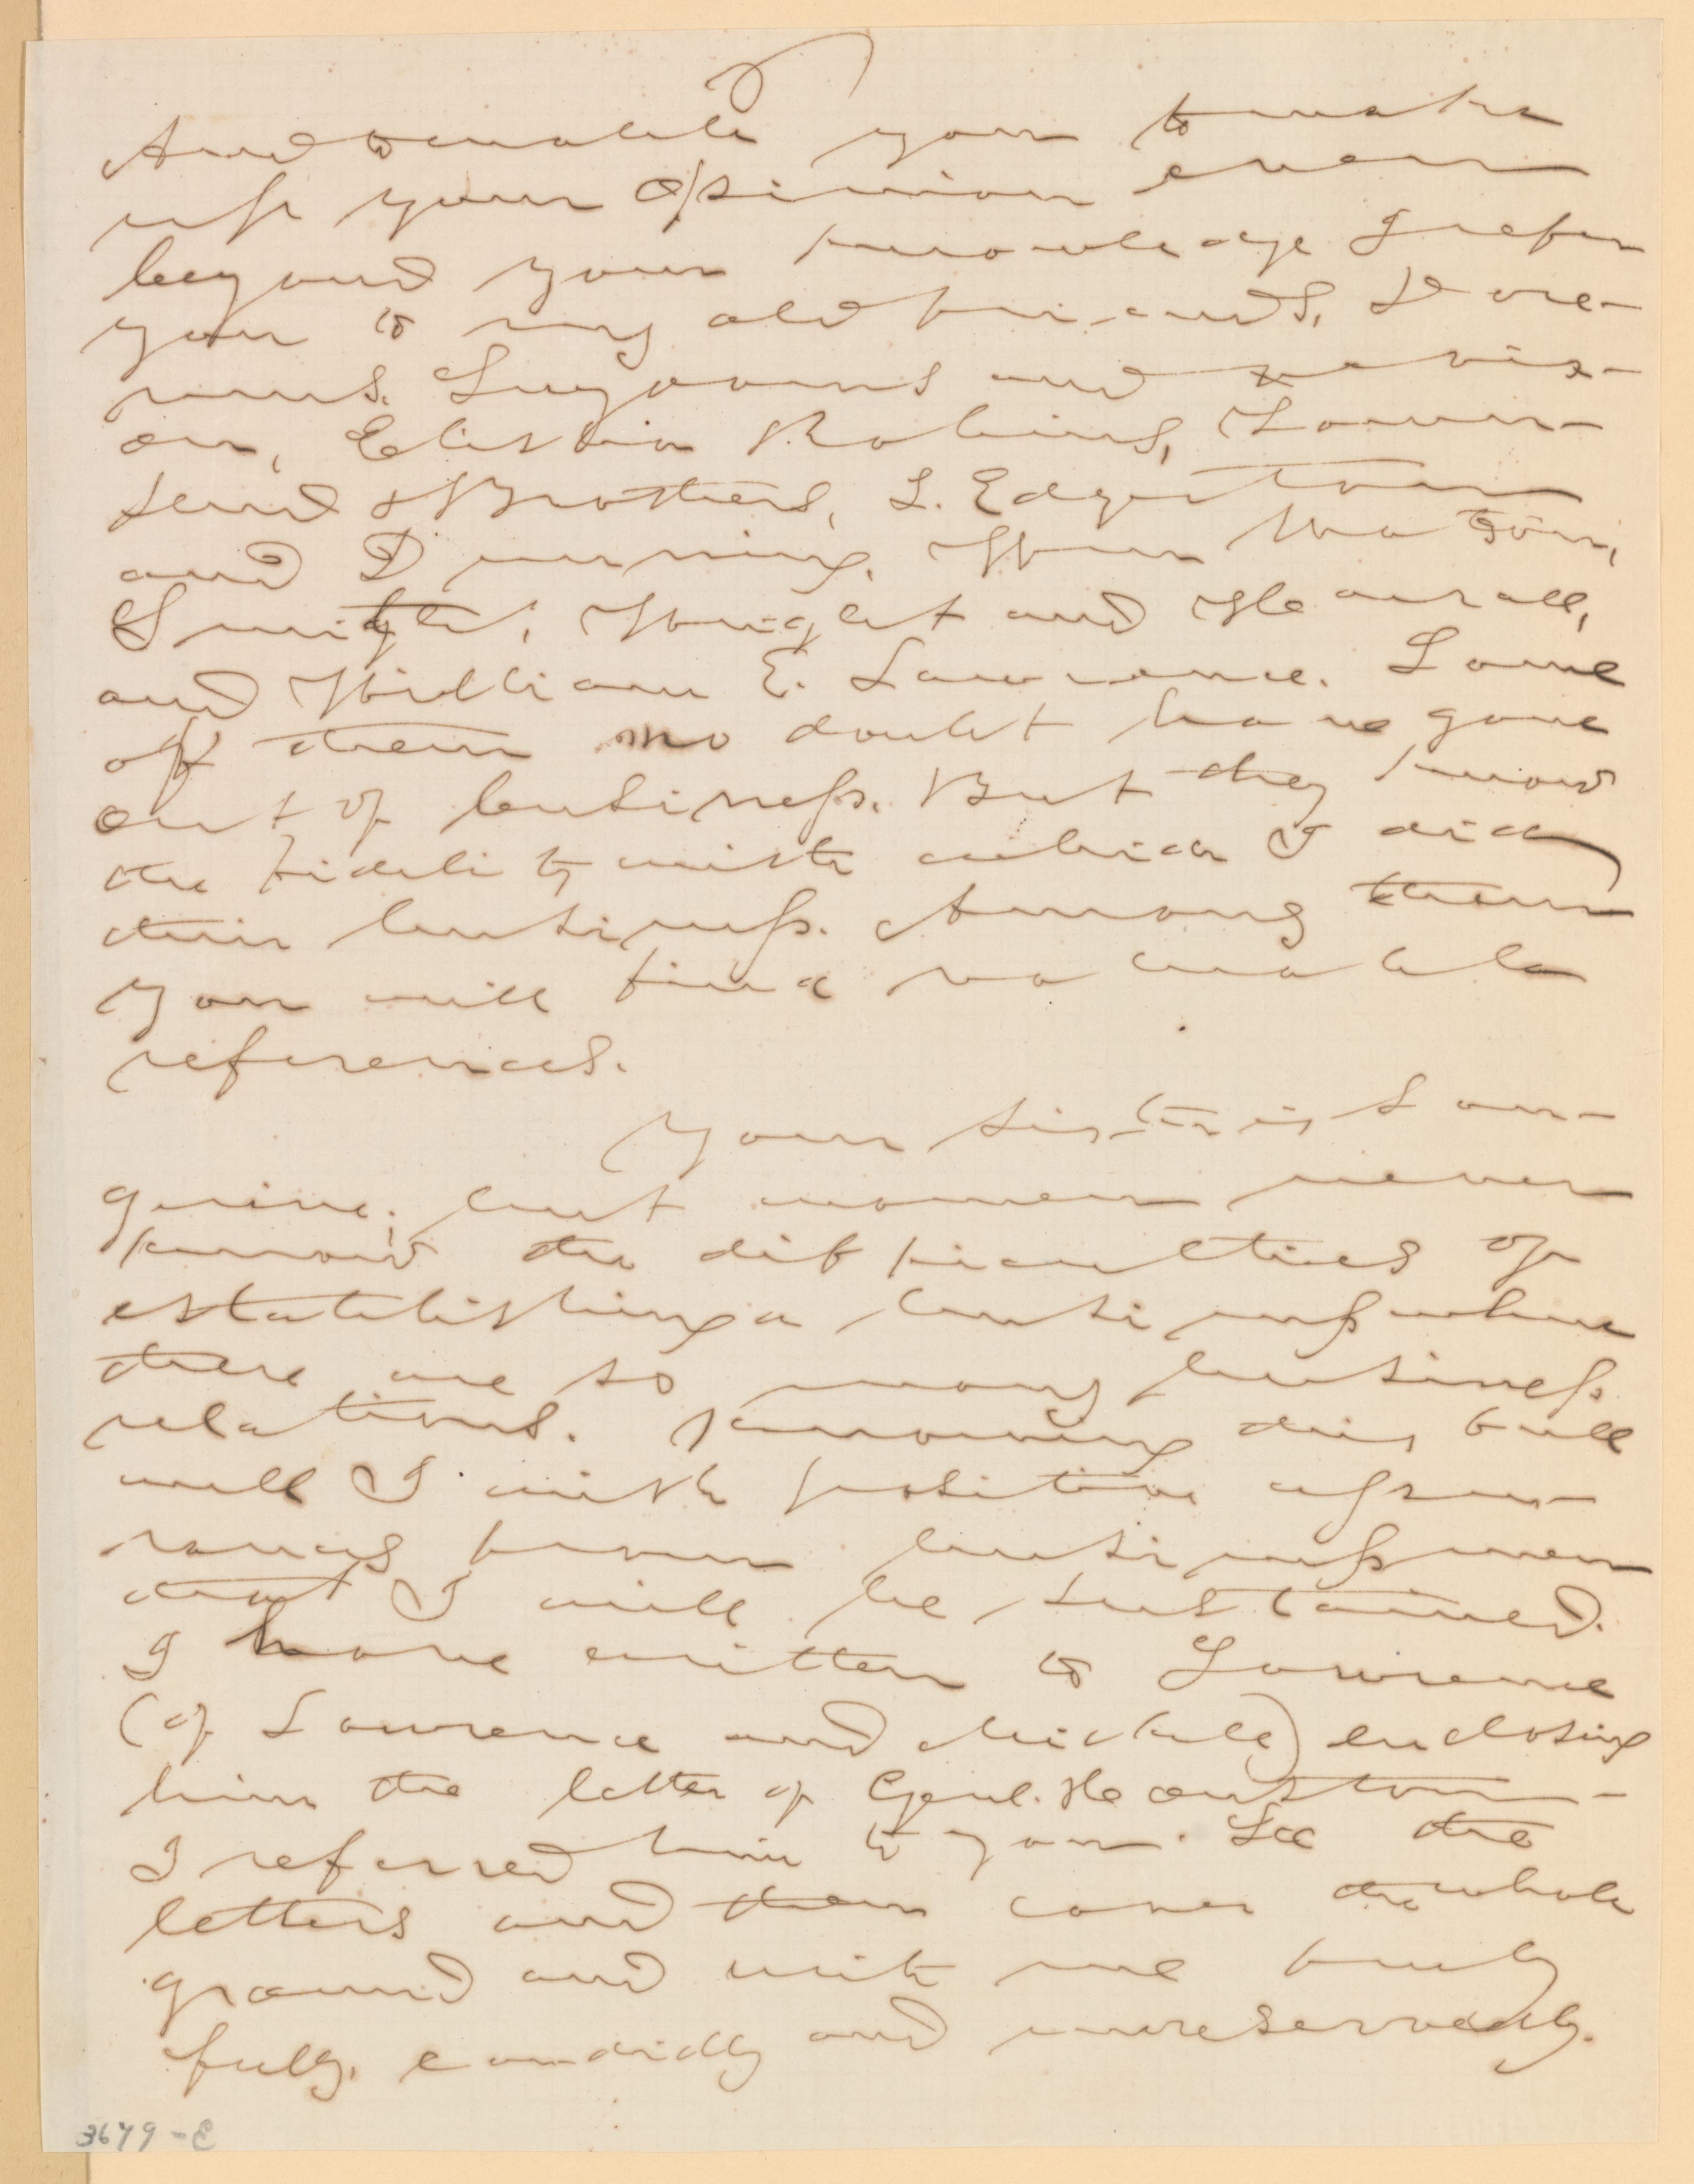 And to enable you to make
up your opinion even
beyond your knowledge I refer
you to my old friends,
and
or, Elisha Robins, Town-
send & Brothers, L. Edgerton
and
Smiths, Wright and
and William E. Lawrence. Some
of them no doubt have gone
out of business. But they know
the fidelity with which I did
their business. Among them
you will find valuable
references.
Your sister is san-
guine; but women never
know the difficulties of
establishing a business where
there are so many business
relations. Knowing this full
well I wish positive assu-
rances from business men
that I will be sustained.
I have written to Lawrence
(of Lawrence and ) enclosing
him the letter of Genl. Houston -
I referred him to you. See the
letters and then cover the whole
ground and write me truly
fully, candidly and unreservedly.
3679-E